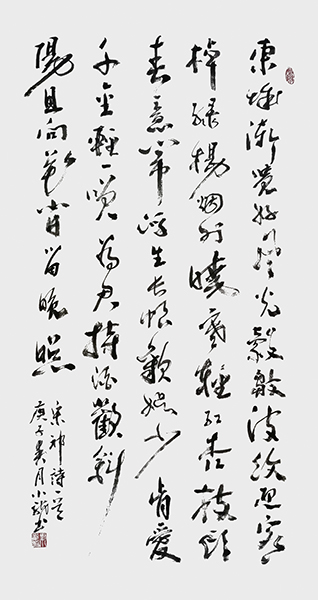 東城漸覺好風光縠皺波紋迎客
棹綠楊烟外曉寒輕紅杏枝頭
春意鬧浮生長恨歡娛少肯愛
千金輕一笑為君持酒勸斜
陽且向花間留晚照
宋祁詩一首
庚子月小书